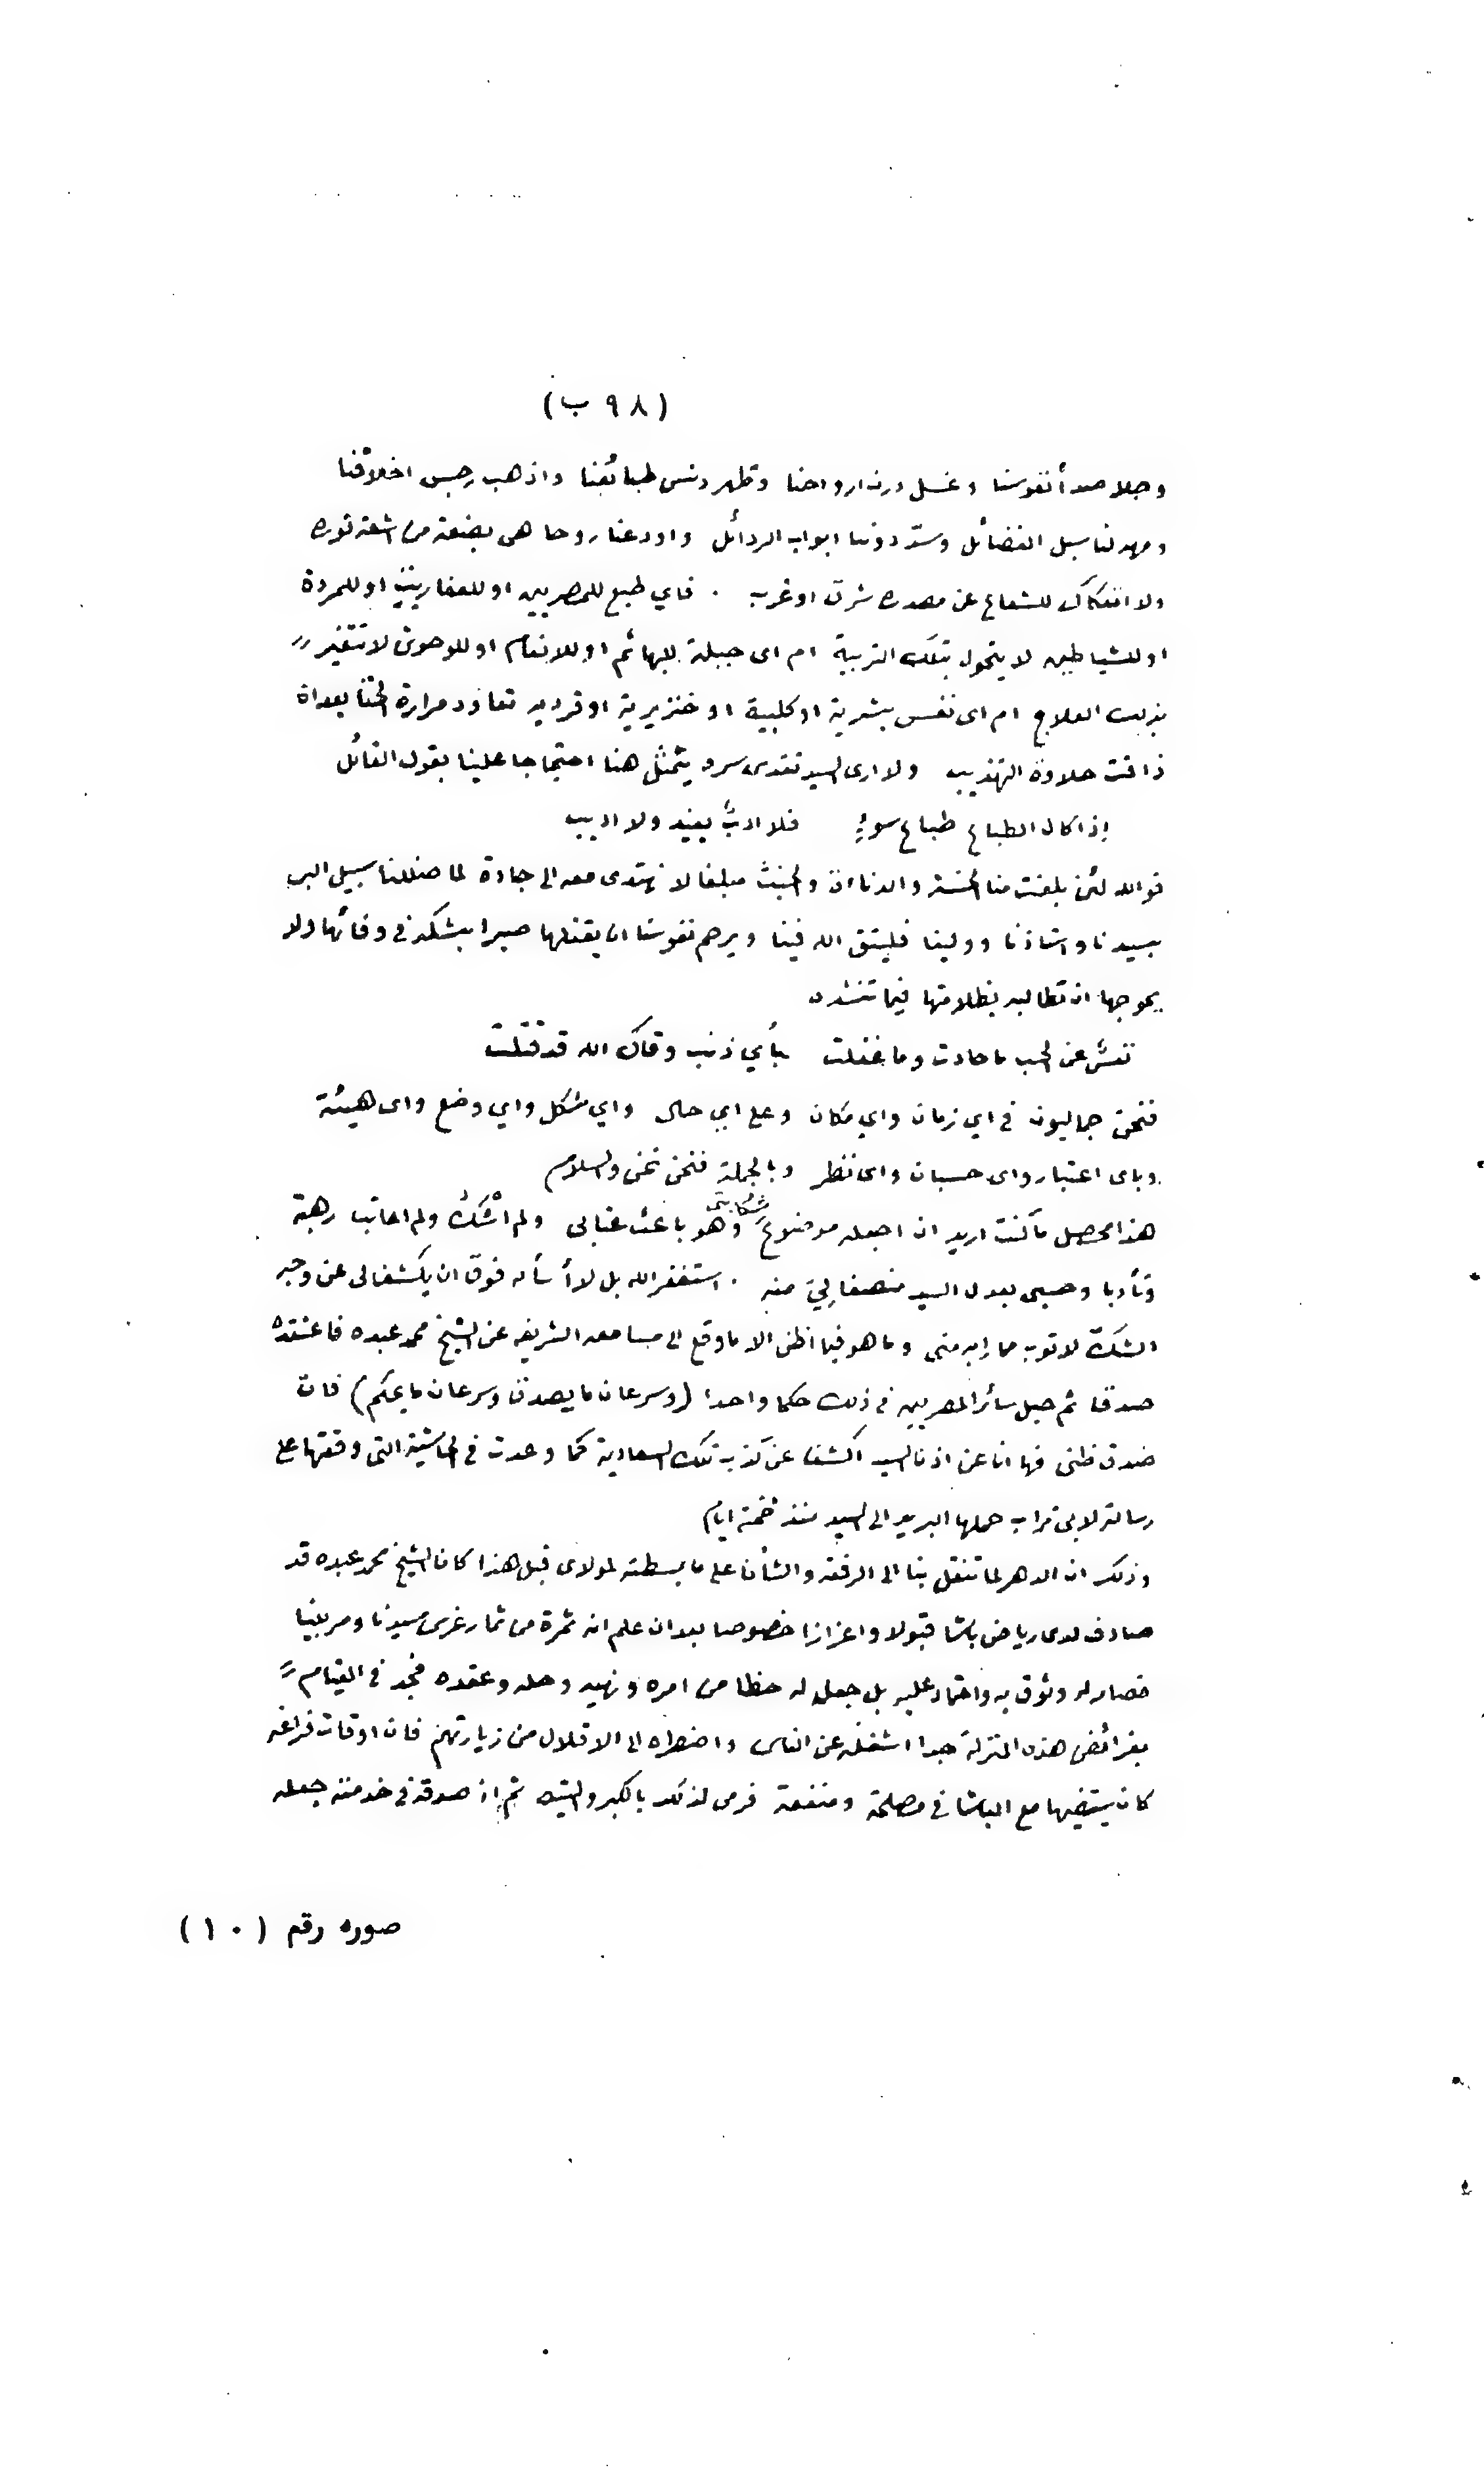 (٩٨ ب)
وجلا صدأ نفوسنا وغسل درن ارواحنا وطهر دنس طبائعنا واذهب رجس اخلاقنا
ومهد لنا سبل الفضائل وسدّ دوننا ابواب الرذائل واودعنا روحا هى بضعة من اشعة نوره
ولا انفكاك للشعاع عن مصدره شرق او غرب . فاي طبع للمصريين او للعفاريت او للمردة
او للشياطين لا يتحول بتلك التربية ام اى جبلة للبهائم او للانعام او للوحوش لا تتغير
بذلك العلاج ام اى نفس بشرية او كلبية او خنزيرية او قردية تعاود مرارة بعد ان
ذاقت حلاوة التهذيب ولا ارى السيد تقدس سره يتمثل هنا احتجاجا علينا بقول القائل
إذا كان الطباع طباع سوءٍ فلا ادبٌ يفيد ولا اديب
فوالله لئن بلغت منا الخسة والدناءة والخبث مبلغا لا نهتدى معه الى جادة لما ضللنا سبيل البر
بسيدنا واستاذنا وولينا فليتق الله فينا ويرحم نفوسنا ان يقتلها صبرا بشكه فى وفائها ولا
يحوجها ان تطالبه بظلامتها فيما تنشده
نفسٌ عن الحب ما حادت وما غفلت بأي ذنب وقاك الله قد قتلت
فنحن جماليون فى اي زمان واي مكان وعلى اي حال واي شكل واي وضع واى هيئة
وباى اعتبار واى حسبان واى نظر وبالجملة فنحن نحن والسلام
هذا محصل ما كنت اريد ان اجعله موضوع شكايتى وهو باعث عتابى ولم أشك ولم اعاتب رهبة
وتأدبا وحسبى بعدل السيد منصفا لِيَ منه . استغفر الله بل لا أسأله فوق ان يكشف لى عن وجه
الشك لاتوب مما رابه منى وما هو فيما اظن الا ما وقع الى مسامعه الشريفه عن الشيخ محمد عبده فاعتقده
صدقا ثم جعل سائر المصريين فى ذلك حكما واحدا (وسرعان ما يصدق وسرعان ما يحكم) فان
صدق ظنى فها انا عن اذن السيد اكشف عن كذب تلك السعاية كما وعدت فى الحاشية التى وقعتها على
رسالة لابى تراب حملها البريد الى السيد منذ خمسة ايام
وذلك ان الدهر لما تنقل بنا الى الرفعة والشأن على ما بسطته لمولاى قبل هذا كان الشيخ محمد عبده قد
صادف لدى رياض باشا قبولا واعزازا خصوصا بعد ان علم انه ثمرة من ثمار غرس سيدنا ومربينا
فصار له وثوق به واعتماد عليه بل جعل له حظا من امره ونهيه وحله وعقده فجد فى القيام
بفرائض هذه المنزلة جدا اشغله عن الناس واضطره الى الاقلال من زيارتهم فان اوقات فراغه
كان يقضيها مع الباشا فى مصلحة ومنفعة فرمى لذلك بالكبر والتيه ثم ان صدقه فى خدمته جعله
صوره رقم (١٠)